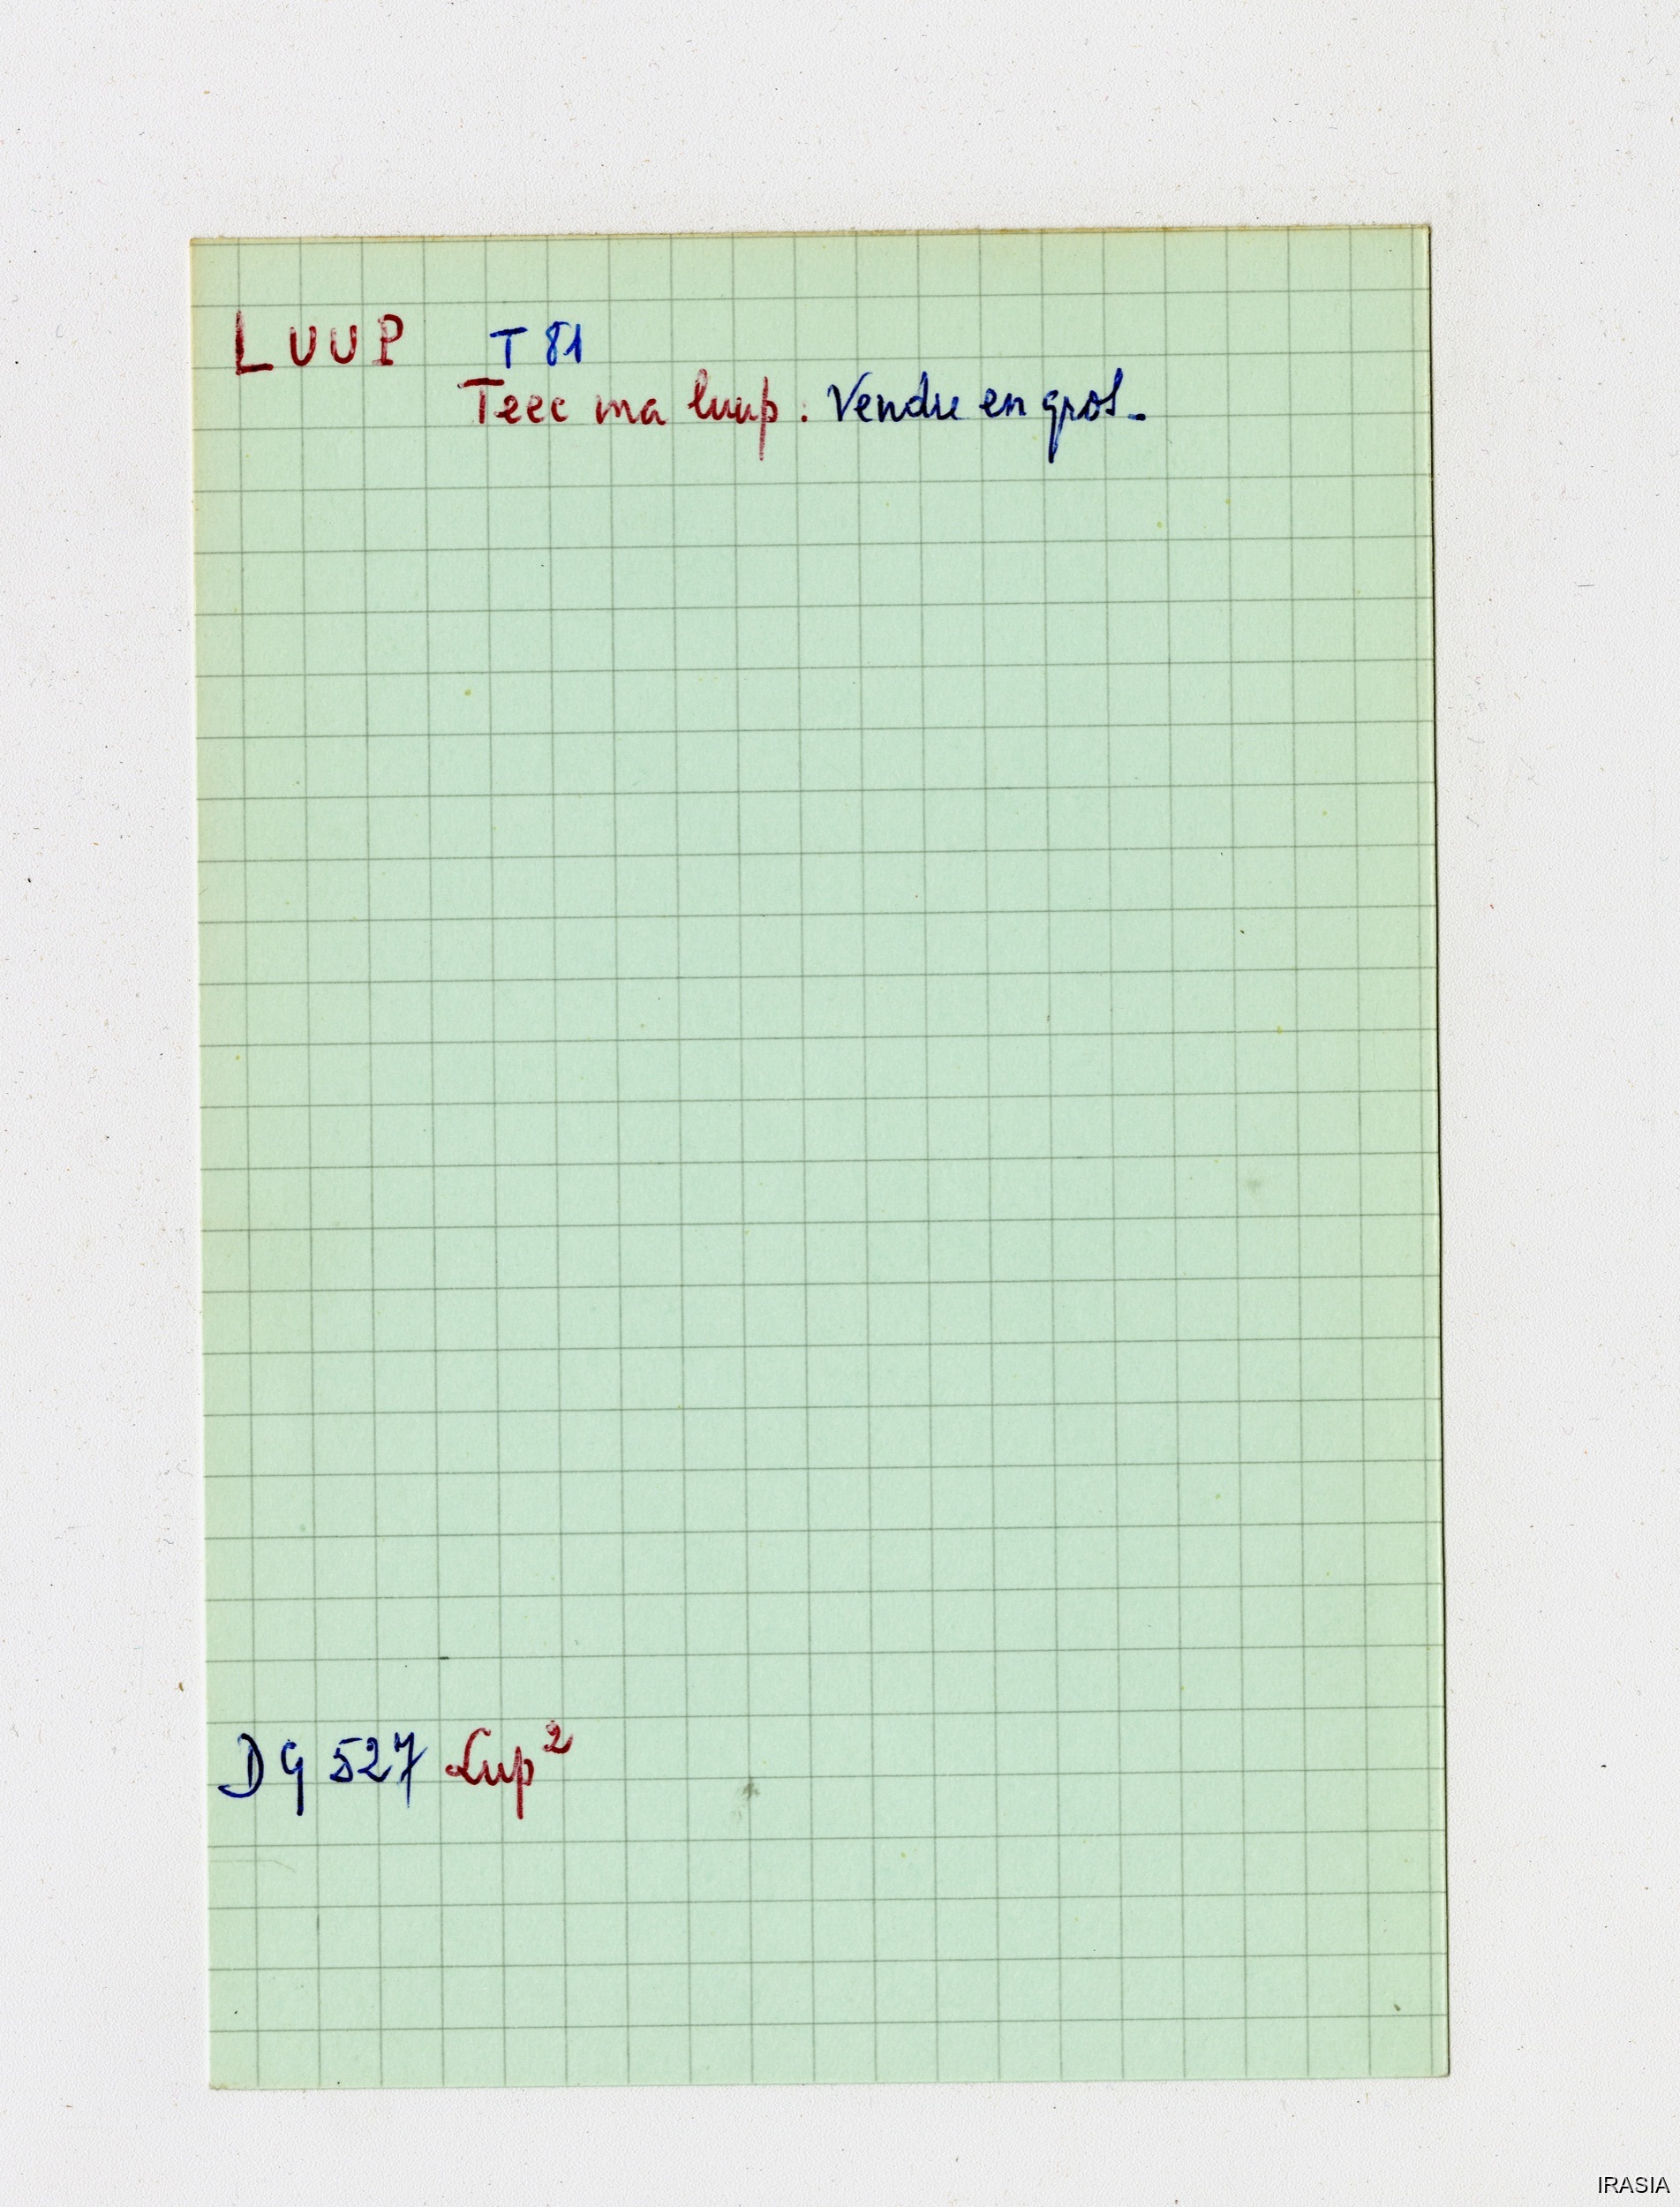 LUUP T 81
Teec ma luup : Vendre en gros_
DG 527 Lup²
IRASIA